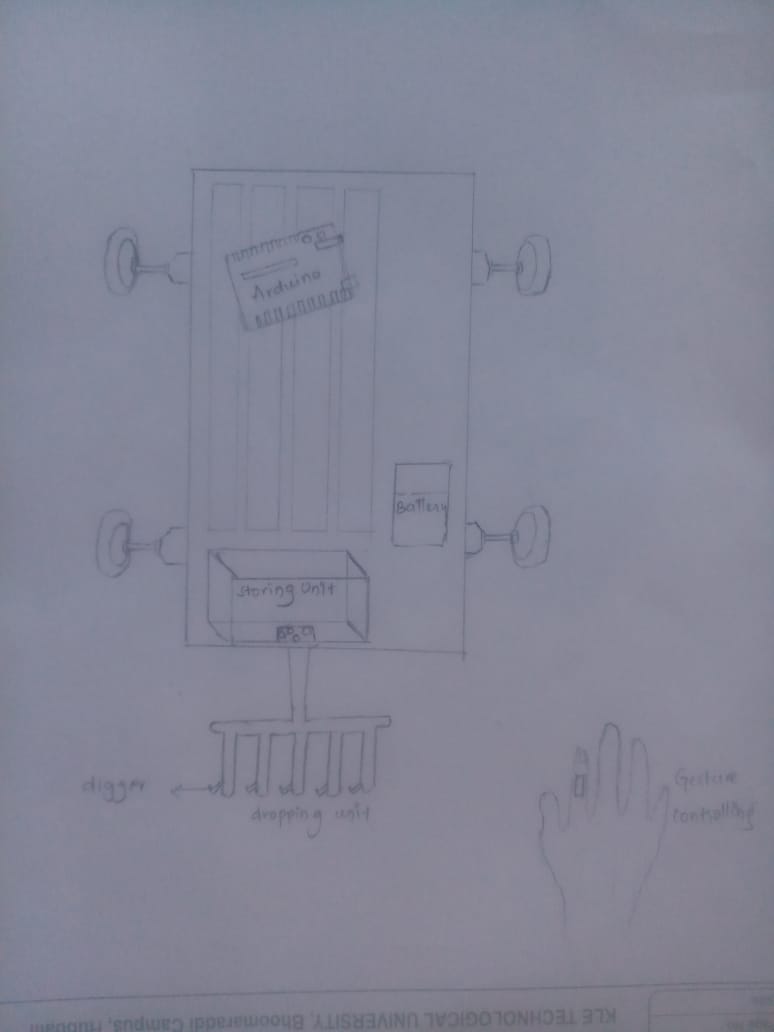 Arduino
Battery
Storing Unit
digger
dropping unit
Gesture
controlling
KLE TECHNOLOGICAL UNIVERSITY, Bhoomaraddi Campus, Hubballi